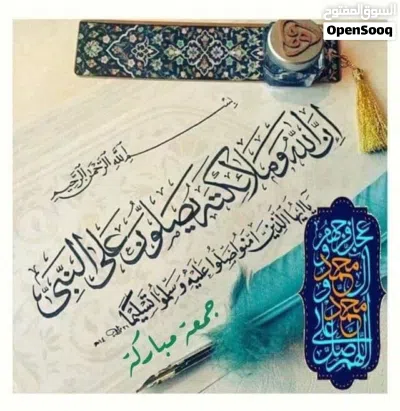 السوق المفتوح
OpenSooq
بسم الله الرحمن الرحيم
إن الله وملائكته يصلون على النبي
يا أيها الذين آمنوا صلوا عليه وسلموا تسليما
جمعة مباركة
اللهم صل على محمد و آل محمد و عجل فرجهم